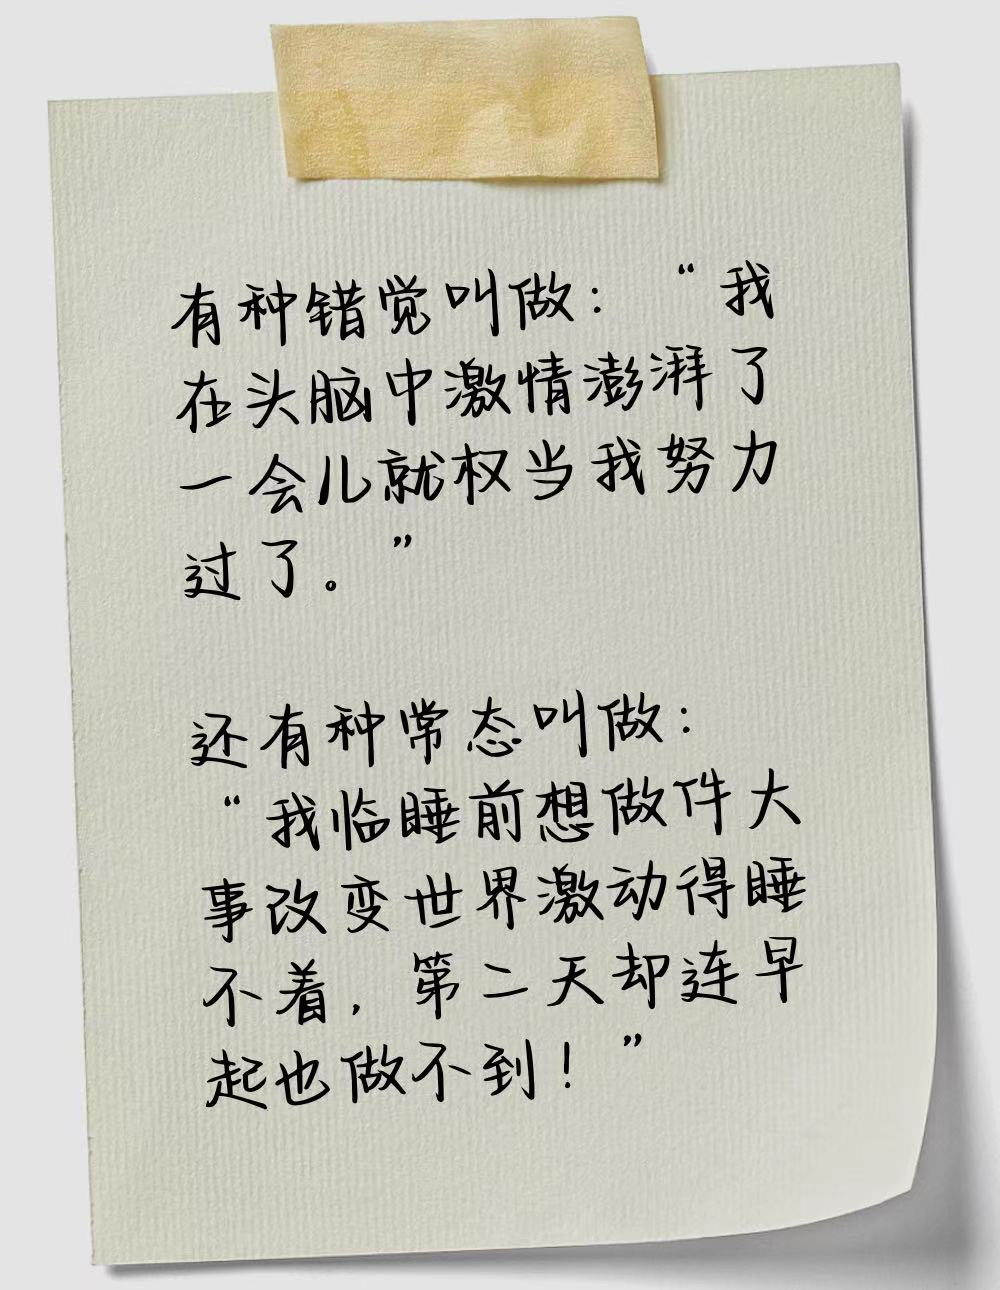 有种错觉叫做：“我
在头脑中激情澎湃了
一会儿就权当我努力
过了。”
还有种常态叫做：
“我临睡前想做件大
事改变世界激动得睡
不着，第二天却连早
起也做不到！”